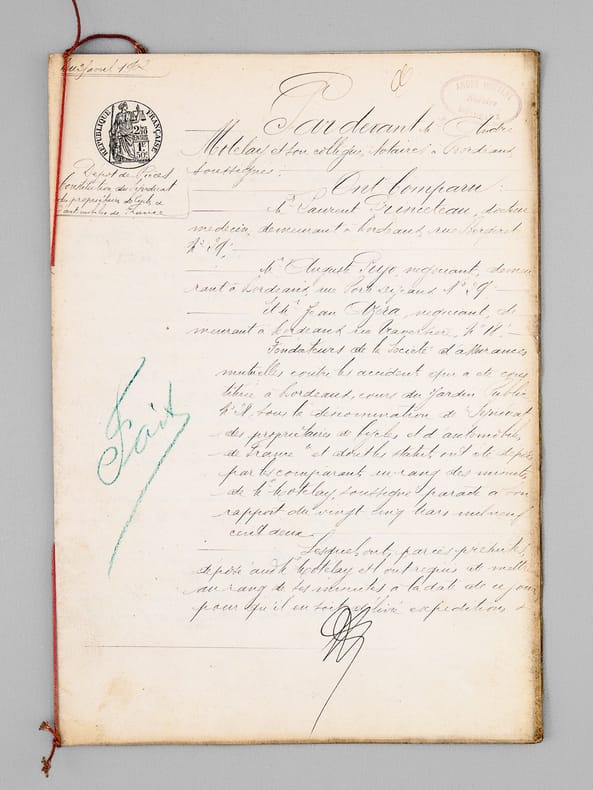 avril 1902
RÉPUBLIQUE FRANÇAISE
Depot de Pièces
Constitution du Syndicat
des propriétaires de Cycles &
d'automobiles de France
ANDRÉ MOTELAY
Notaire
Pardevant Me André
Motelay et son collègue, notaires à Bordeaux,
soussignés;
Ont Comparu:
Mr Laurent Princeteau, docteur
médecin, demeurant à Bordeaux, rue
No 39;
Mr Auguste Pujo, négociant, demeu
rant à Bordeaux, rue Porte Dijeaux No 39;
Et Mr Jean négociant, de
meurant à Bordeaux rue Traversière, No 18;
Fondateurs de la Société d'assurances
mutuelles contre les accidents qui a été cons
tituée à Bordeaux, cours du Jardin Public
No 28, sous la dénomination de "Syndicat
des propriétaires de Cycles et d'automobiles
de France" et dont les statuts ont été déposés
par les comparants au rang des minutes
de Me Motelay, soussigné par acte à son
rapport du vingt cinq mars mil neuf
cent deux.
Lesquels ont, par ces présentes,
déposé audit Me Motelay et l'ont requis de mettre
au rang de ses minutes à la date de ce jour
pour qu'il en soit délivré expéditions &
Fait